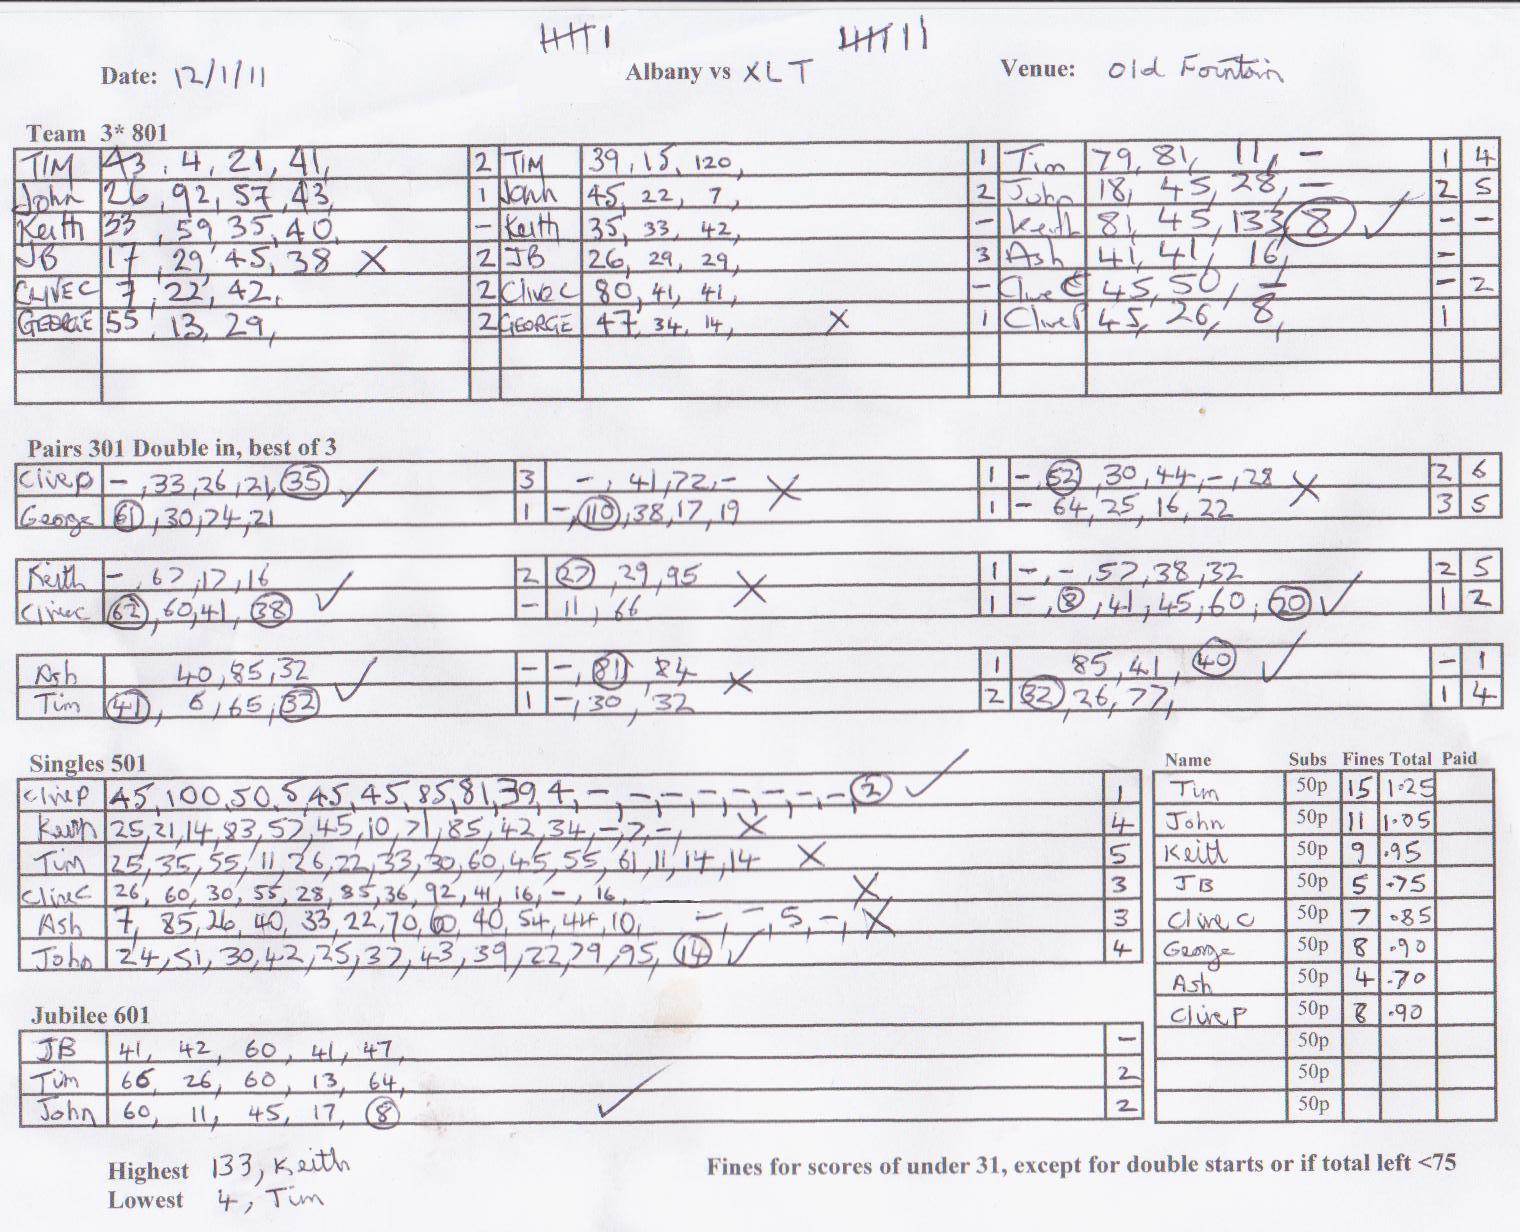 Date: 12/1/11 Albany vs XLT Venue: Old Fountain
Team 3* 801
TIM 43, 4, 21, 41, 2 TIM 39, 15, 120, 1 Tim 79, 81, 11, - 1 4
John 26, 92, 57, 43, 1 John 45, 22, 7, 2 John 18, 45, 28, - 2 5
Keith 33, 59, 35, 40, - Keith 35, 33, 42, - Keith 81, 45, 133, 8 ✓ - -
JB 17, 29, 45, 38 X 2 JB 26, 29, 29, 3 Ash 41, 41, 16, -
CLIVE C 7, 22, 42, 2 Clive C 80, 41, 41, - Clive C 45, 50, - - 2
GEORGE 55, 13, 29, 2 GEORGE 47, 34, 14, X 1 Clive P 45, 26, 8, 1
Pairs 301 Double in, best of 3
Clive P -, 33, 26, 21, 35 ✓ 3 -, 41, 72, - X 1 -, 52, 30, 44, -, 28 X 2 6
George 61, 30, 74, 21 1 -, 110, 38, 17, 19 1 - 64, 25, 16, 22 3 5
Keith -, 67, 17, 16 ✓ 2 27, 29, 95 X 1 -, -, 57, 38, 32 2 5
Clive C 62, 60, 41, 38 - 11, 66 1 -, 8, 41, 45, 60, 20 ✓ 1 2
Ash 40, 85, 32 ✓ - -, 81, 84 X 1 85, 41, 40 ✓ - 1
Tim 41, 6, 65, 32 1 -, 30, 32 2 32, 26, 77, 1 4
Singles 501
Clive P 45, 100, 50, 5, 45, 45, 85, 81, 39, 4, -, -, -, -, -, -, -, -, 2 ✓ 1
Keith 25, 21, 14, 83, 57, 45, 10, 71, 85, 42, 34, -, 7, -, X 4
Tim 25, 35, 55, 11, 26, 22, 33, 30, 60, 45, 55, 61, 11, 14, 14 X 5
Clive C 26, 60, 30, 55, 28, 85, 36, 92, 41, 16, -, 16, X 3
Ash 7, 85, 26, 40, 33, 22, 70, 60, 40, 54, 44, 10, -, -, 5, -, X 3
John 24, 51, 30, 42, 25, 37, 43, 39, 22, 79, 95, 14 ✓ 4
Name Subs Fines Total Paid
Tim 50p 15 1.25
John 50p 11 1.05
Keith 50p 9 .95
JB 50p 5 .75
Clive C 50p 7 .85
George 50p 8 .90
Ash 50p 4 .70
Clive P 50p 8 .90
50p
50p
50p
Jubilee 601
JB 41, 42, 60, 41, 47, -
Tim 66, 26, 60, 13, 64, 2
John 60, 11, 45, 17, 8 ✓ 2
Highest 133, Keith
Lowest 4, Tim
Fines for scores of under 31, except for double starts or if total left <75